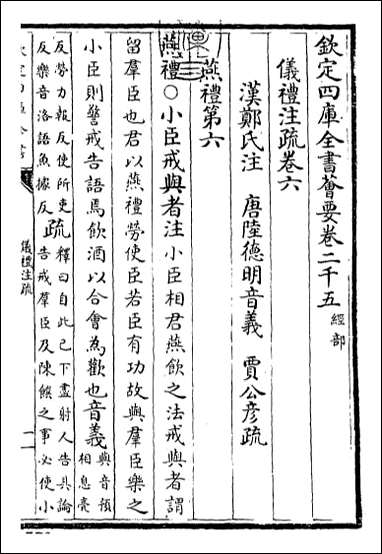 欽定四庫全書薈要卷二千五 經部
儀禮注疏卷六
漢鄭氏注 唐陸德明音義 賈公彥疏
燕禮第六
燕禮○小臣戒與者注小臣相君燕飲之法戒與者謂
留羣臣也君以燕禮勞使臣若臣有功故與羣臣樂之
小臣則警戒告語焉飲酒以合會為歡也音義 與音預
相息亮
反勞力報反使所吏
反樂音洛語魚據反
疏 釋曰自此已下盡射人告具論
告戒羣臣及陳饌之事必使小
儀禮注疏